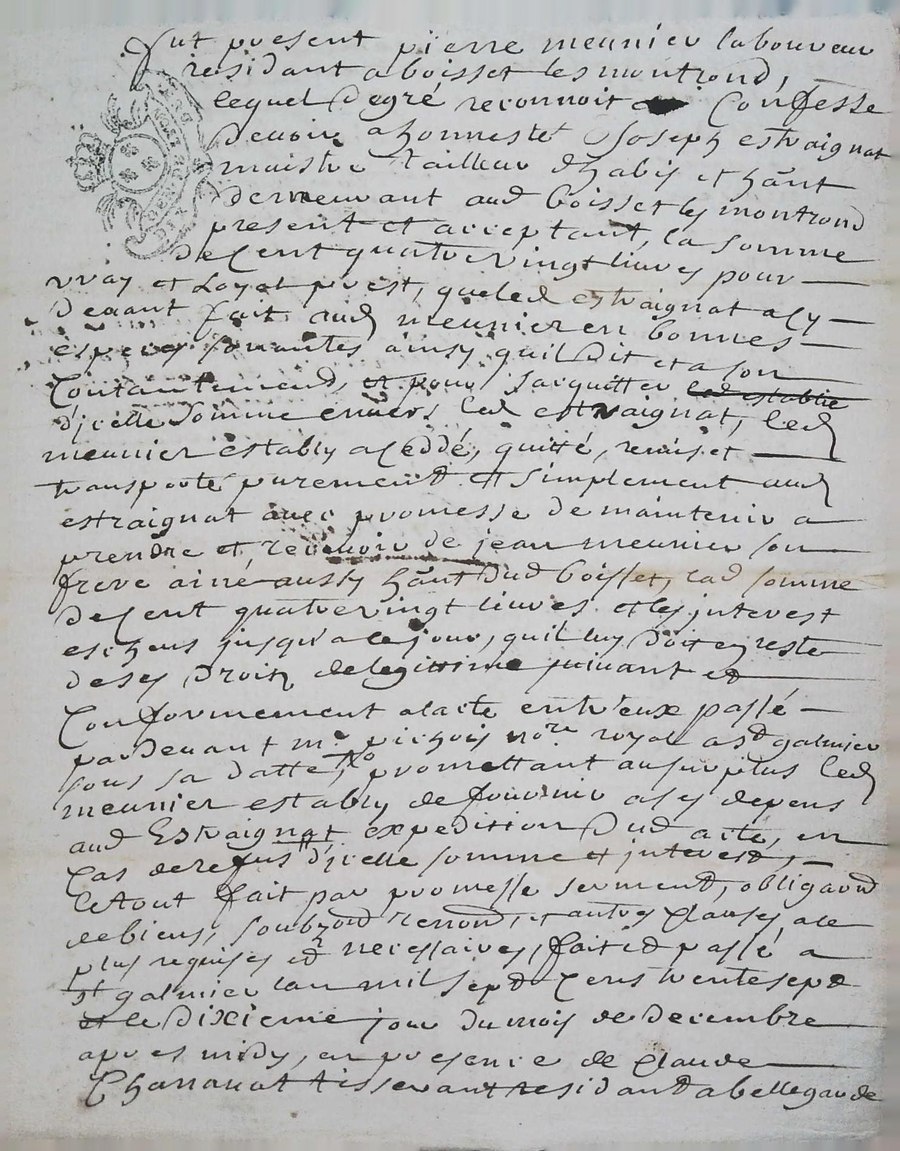 fut present pierre meunier laboureur
residant a boisset les montrond,
lequel degré reconnoit Confesse
devoir a honneste Joseph estraignat
maistre tailleur dhabis et hant
demeurant aud boisset les montrond
present et acceptant, la somme
de Cent quatrevingt livres pour
vray et Loyal prest, queled estraignat a cy
devant fait aud meunier en bonnes
especes sonantes ainsy quil dit et a son
Contantement, et pour sacquitter led estably
d'jcelle somme envers led estraignat, led
meunier estably a Ceddé, quitté, remis et
transporté purement et simplement aud
estraignat avec promesse de maintenir a
prendre et recevoir de jean meunier son
frere ainé aussy hant dud boisset, lad somme
de Cent quatrevingt livres et les interest
escheus jusqu'a ce jour, quil luy doit en reste
de ses droits de legitime suivant et
Conformement a lacte entr'eux passé
pardevant me pichois nore royal a st galmier
sous sa datte, promettant au surplus led
meunier estably de fournir a ses depens
aud Estraignat expedition dud acte, en
Cas de refus d'jcelle somme et interest,
le tout fait par promesse serment, obligaon
de biens, soubzon renon, et autres clauses a ce
plus requises et necessaires, fait et passé a
st galmier lan mil sept Cens trente sept
et le dixieme jour du mois de decembre
apres midy, en presence de claude
Chananat tisserant residant a bellegarde